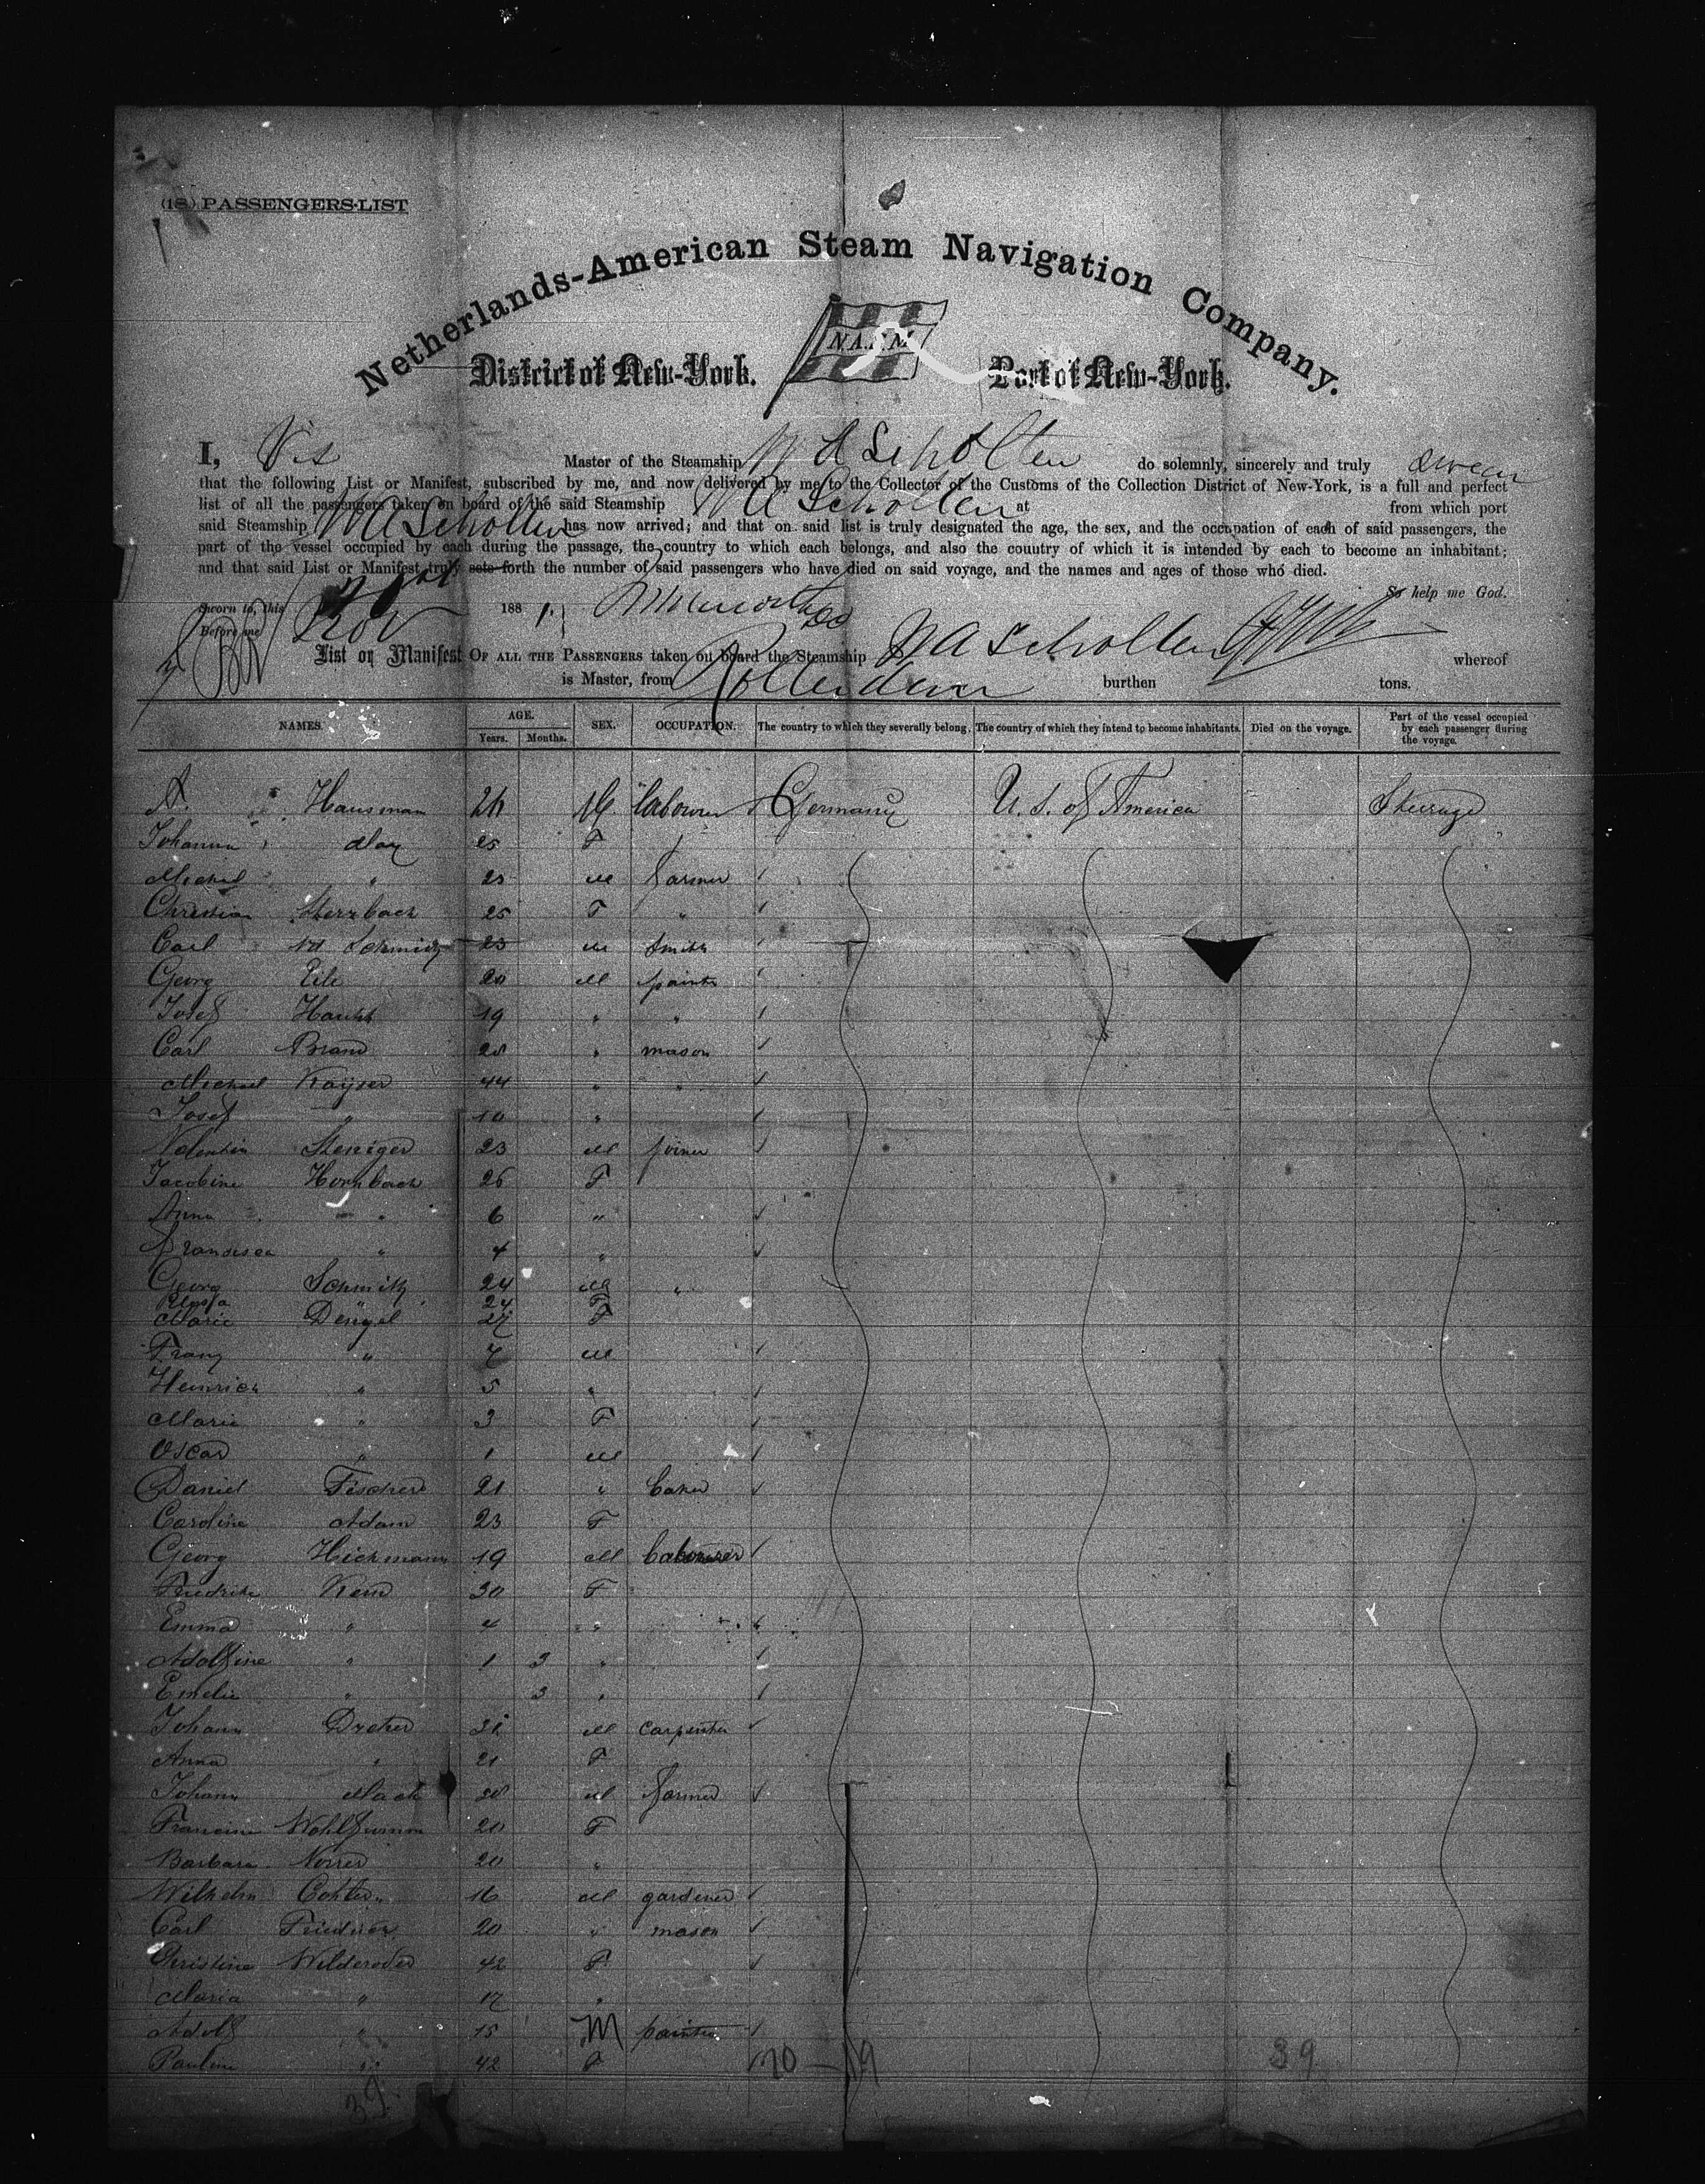 (18) PASSENGERS-LIST
Netherlands-American Steam Navigation Company.
N.A.S.M.
District of New-York. Port of New-York.
I, Vis Master of the Steamship W A Scholten do solemnly, sincerely and truly swear
that the following List or Manifest, subscribed by me, and now delivered by me to the Collector of the Customs of the Collection District of New-York, is a full and perfect
list of all the passengers taken on board of the said Steamship W A Scholten at from which port
said Steamship W A Scholten has now arrived; and that on said list is truly designated the age, the sex, and the occupation of each of said passengers, the
part of the vessel occupied by each during the passage, the country to which each belongs, and also the country of which it is intended by each to become an inhabitant;
and that said List or Manifest truly sets forth the number of said passengers who have died on said voyage, and the names and ages of those who died.
So help me God.
Sworn to, this Nov 1881.
Before me
List or Manifest OF ALL THE PASSENGERS taken on board the Steamship W A Scholten whereof
is Master, from Rotterdam burthen tons.
NAMES. AGE. SEX. OCCUPATION. The country to which they severally belong. The country of which they intend to become inhabitants. Died on the voyage. Part of the vessel occupied by each passenger during the voyage.
Years. Months.
Hausman labourer Germany U. S. of America Steerage
Johanna May 25 F
Michel " 25 M farmer
Christian Sterzbach 25 F "
Carl Schmitz 23 M smith
Georg Eile 20 M painter
Josef Haukt 19 " "
Carl Brand 28 " mason
Michael Kayser 44 " "
Josef " 10 "
Valentin Steniger 23 M joiner
Jacobine Hornbach 26 F
Anna " 6 "
Francisca " 4 "
Georg Schmitz 24 M "
24 F
Marie Dengel 27 F
Franz " 7 M
Heinrich " 5 "
Marie " 3 F
Oscar " 1 M
Daniel Fischer 21 " baker
Caroline Adam 23 F
Georg Hickmann 19 M labourer
Friedrike Kern 30 F
Emma " 4 "
Adolfine " 1 3 "
Emelie " 3 "
Johann Dreher 31 M carpenter
Anna " 21 F
Johann Mack M farmer
Francine Wohlfromm 20 F
Barbara Norrer 20 "
Wilhelm 16 M gardener
Carl Friedrich 20 " mason
Christine Wilderoder 42 F
Maria " 17 "
Adolf " 15 M painter
Pauline " 42 F 20 - 19 39
39